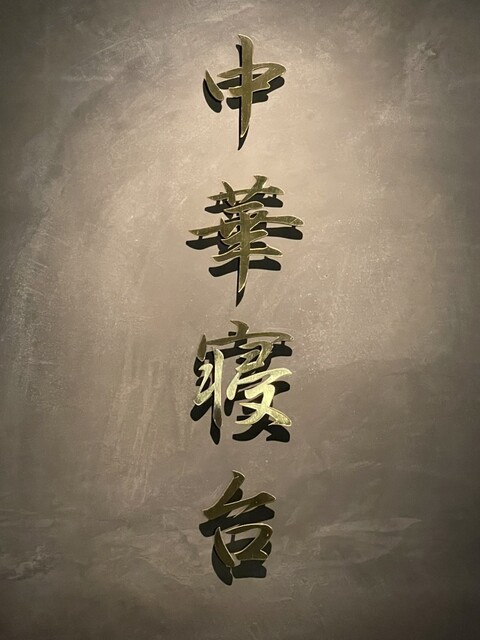 中華寝台